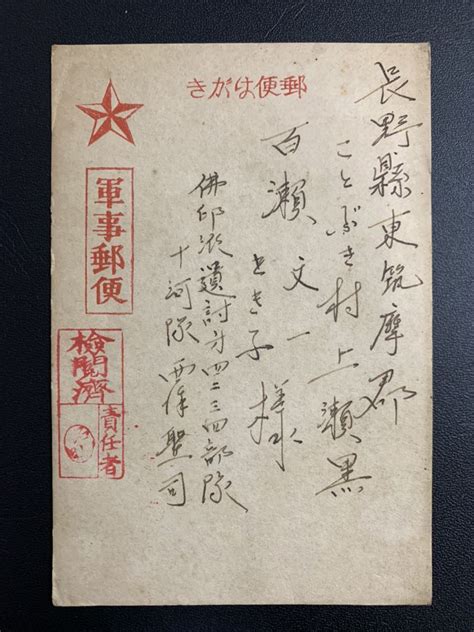 きがは便郵
長野縣東筑摩郡
ことぶき村上瀬黒
百瀬文一様
とき子
佛印派遣討第四二三四部隊
十河隊
司
軍事郵便
検閲濟
責任者